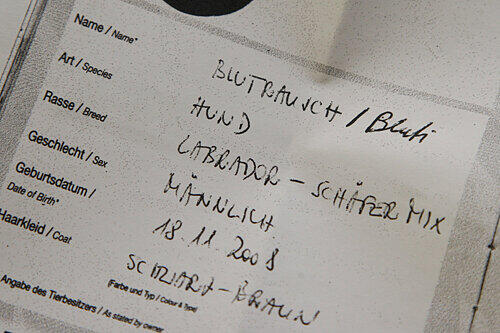 Name / Name* BLUTRAUSCH / Bluti
Art / Species HUND
Rasse / Breed LABRADOR - SCHÄFER MIX
Geschlecht / Sex MÄNNLICH
Geburtsdatum / 18.11.2008
Date of Birth*
Haarkleid / Coat SCHWARZ-BRAUN
(Farbe und Typ / Colour & Type)
Angabe des Tierbesitzers / As stated by owner